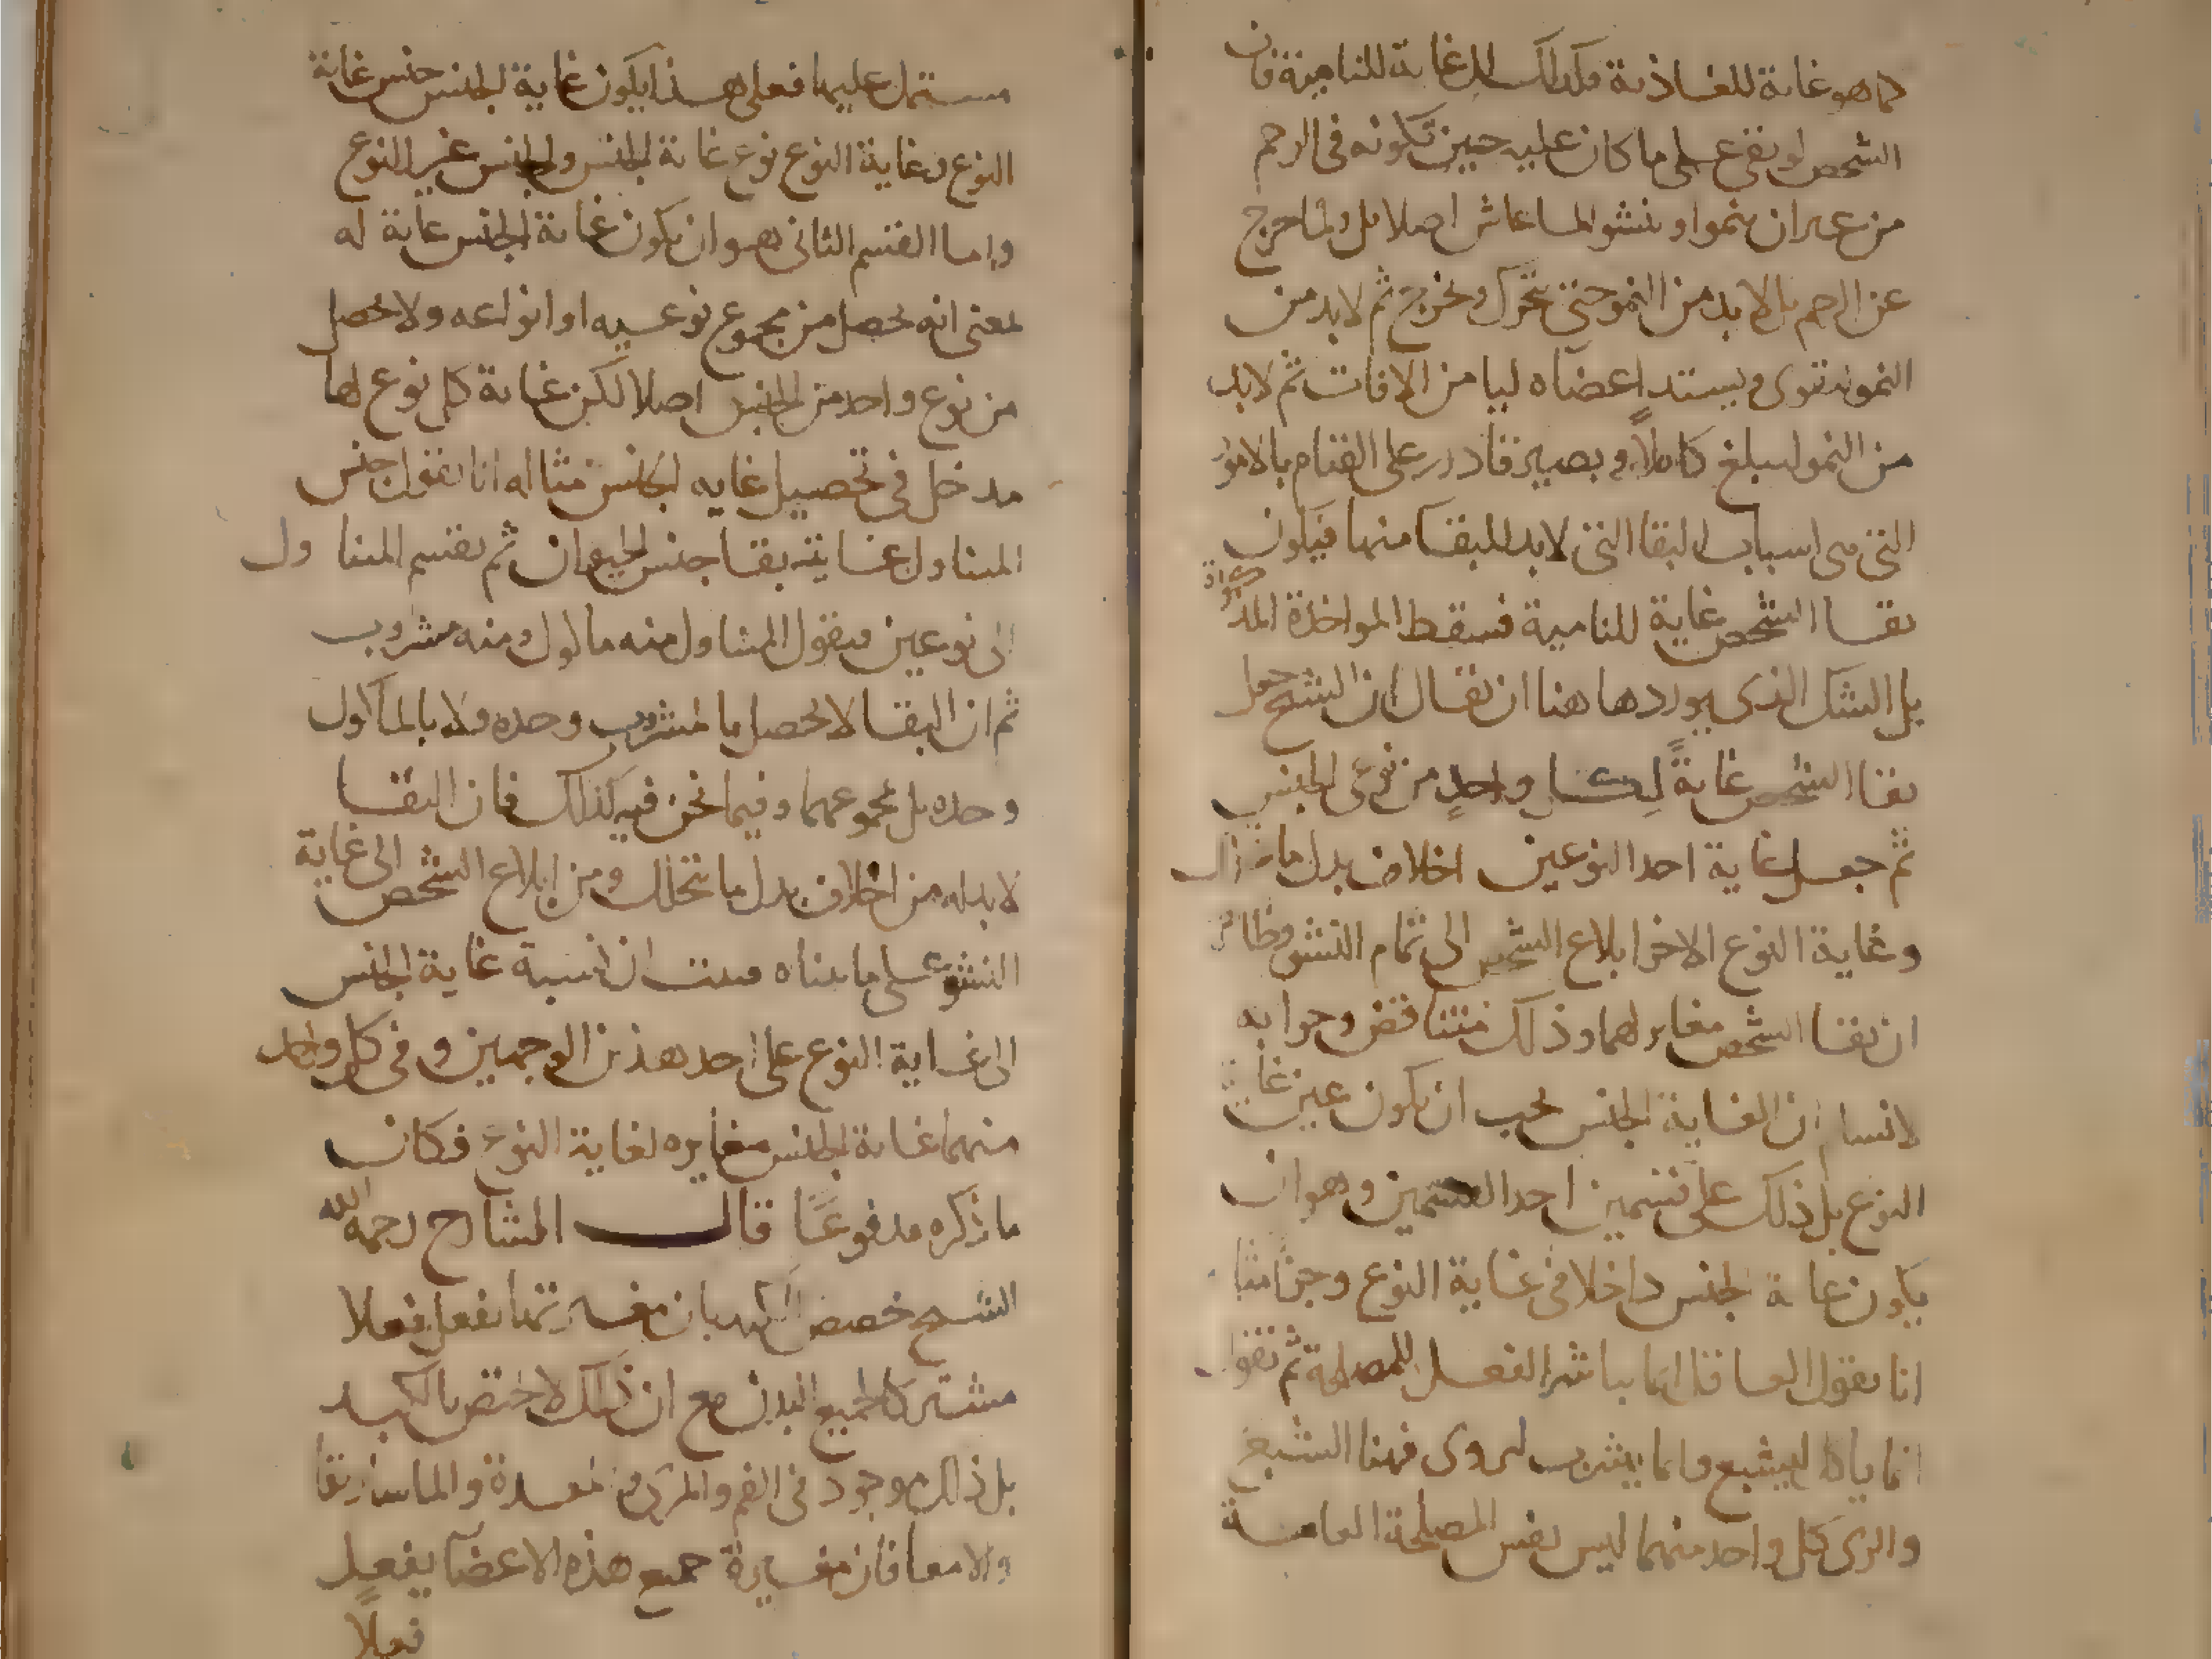 كما هو غاية للغاذية فكذلك غاية للنامية فان
الشخص لو بقى على ما كان عليه حين تكونه فى الرحم
من غير ان ينموا وينشوا لما عاش اصلا بل ولما خرج
عن الرحم بل لا بد من النمو حتى يتحرك ويخرج ثم لا بد من
النمو ويستد اعضاه ليامن الافات ثم لا بد
من النمو ليبلغ كاملا ويصير قادرا على القيام بالامور
التى هى اسباب البقا التى لا بد للبقا منها فيكون
بقا الشخص غاية للنامية فسقط المواخذة المذكورة
بل الشك الذى يورد هاهنا ان يقال ان الشيخ جعل
بقا الشخص غايةً لكل واحدٍ من نوعى الجنس
ثم جعل غاية احد النوعين اخلاف بدل ما
وغاية النوع الاخر ابلاغ الشخص الى تمام النشو وظاهر
ان بقا الشخص مغاير لهما وذلك متناقض وجوابه
لانسلم ان الغاية الجنس يجب ان يكون عين غاية
النوع بل ذلك على قسمين احد القسمين وهو ان
يكون غاية الجنس داخلا فى غاية النوع وجزا
انا نقول العاقل انما يباشر الفعل للمصلحة ثم نقول
انما ياكل ليشبع وانما يشرب ليروى فهنا الشبع
والرى كل واحد منهما ليس نفس المصلحة العامة
مشتمل عليها فعلى هذا يكون غاية الجنس جنس غاية
النوع وغاية النوع نوع غاية الجنس والجنس غير النوع
واما القسم الثانى هو ان يكون غاية الجنس غاية له
بمعنى انه يحصل من مجموع نوعيه او انواعه ولا يحصل
من نوع واحد من الجنس اصلا لكن غاية كل نوع لها
مدخل فى تحصيل غايه الجنس مثاله انا نقول جنس
المتناول غايته بقا جنس الحيوان ثم نقسم المتناول
الى نوعين فنقول المتناول منه ماكول ومنه مشروب
ثم ان البقا لا يحصل بالمشروب وحده ولا بالماكول
وحده بل بمجموعهما وفيما نحن فيه كذلك فان البقا
لا بد له من اخلاف بدل ما يتحلل ومن ابلاغ الشخص الى غاية
النشو على ما بيناه فثبت ان نسبة غاية الجنس
الى غاية النوع على احد هذين الوجهين وفى كل واحد
منهما غاية الجنس مغايره لغاية النوع فكان
ما ذكره مدفوعًا قال الشارح رحمه الله
الشيخ خصص الكبد بان مغيرتها تفعل فعلا
مشتركا لجميع البدن مع ان ذلك لا يختص بالكبد
بل ذلك موجود فى الفم والمرى والمعدة والماساريقا
والامعا فان مغيرة جميع هذه الاعضا يفعل
فعلًا